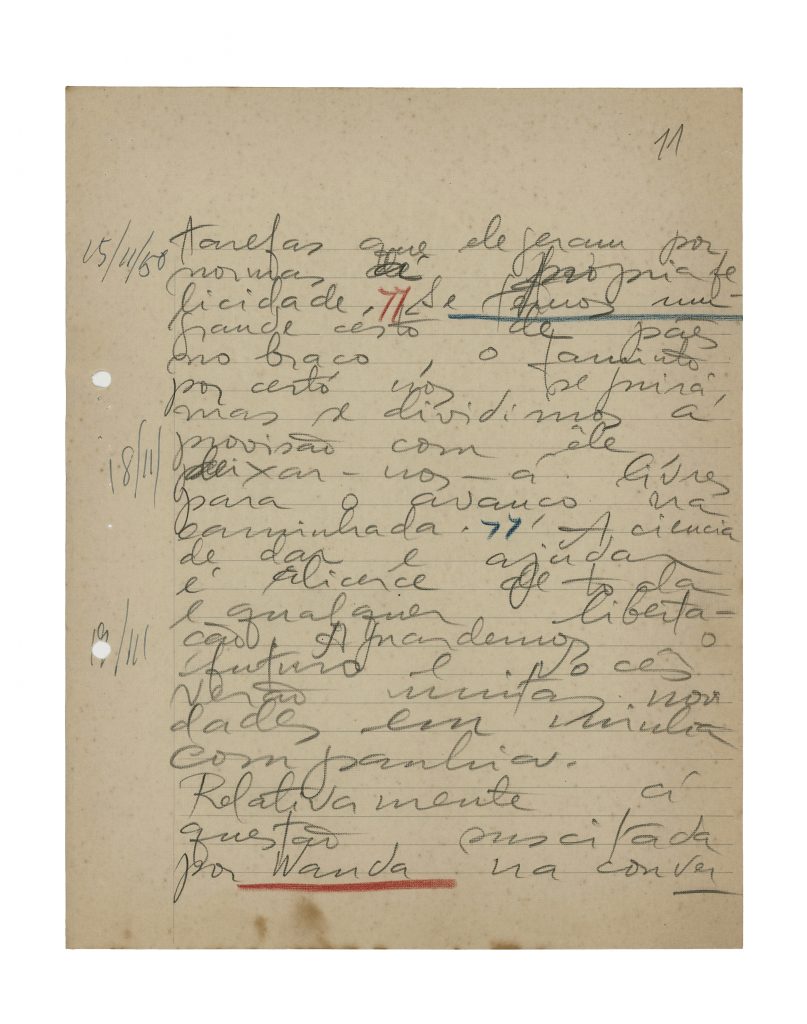 11
15/11/50
tarefas que elegeram por
normas dá própria fe
licidade. "Se temos um
grande cêsto de pães
no braço, o faminto
por certo nos seguirá,
mas se dividimos a
provisão com êle
deixar-nos-á livres
18/11/
para o avanço na
caminhada." A ciencia
de dar e ajudar
é alicerce de toda
e qualquer liberta-
ção. Aguardemos o
19/11/
futuro e vocês
verão muitas novi
dades em minha
companhia.
Relativamente á
questão suscitada
por Wanda na conver